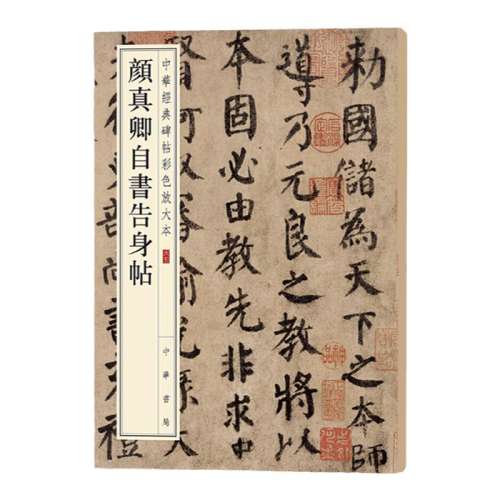 勅國儲為天下之本師
導乃元良之教將以
本固必由教先非求中
賢何以審諭光祿大
中華經典碑帖彩色放大本
顔真卿自書告身帖
中華書局